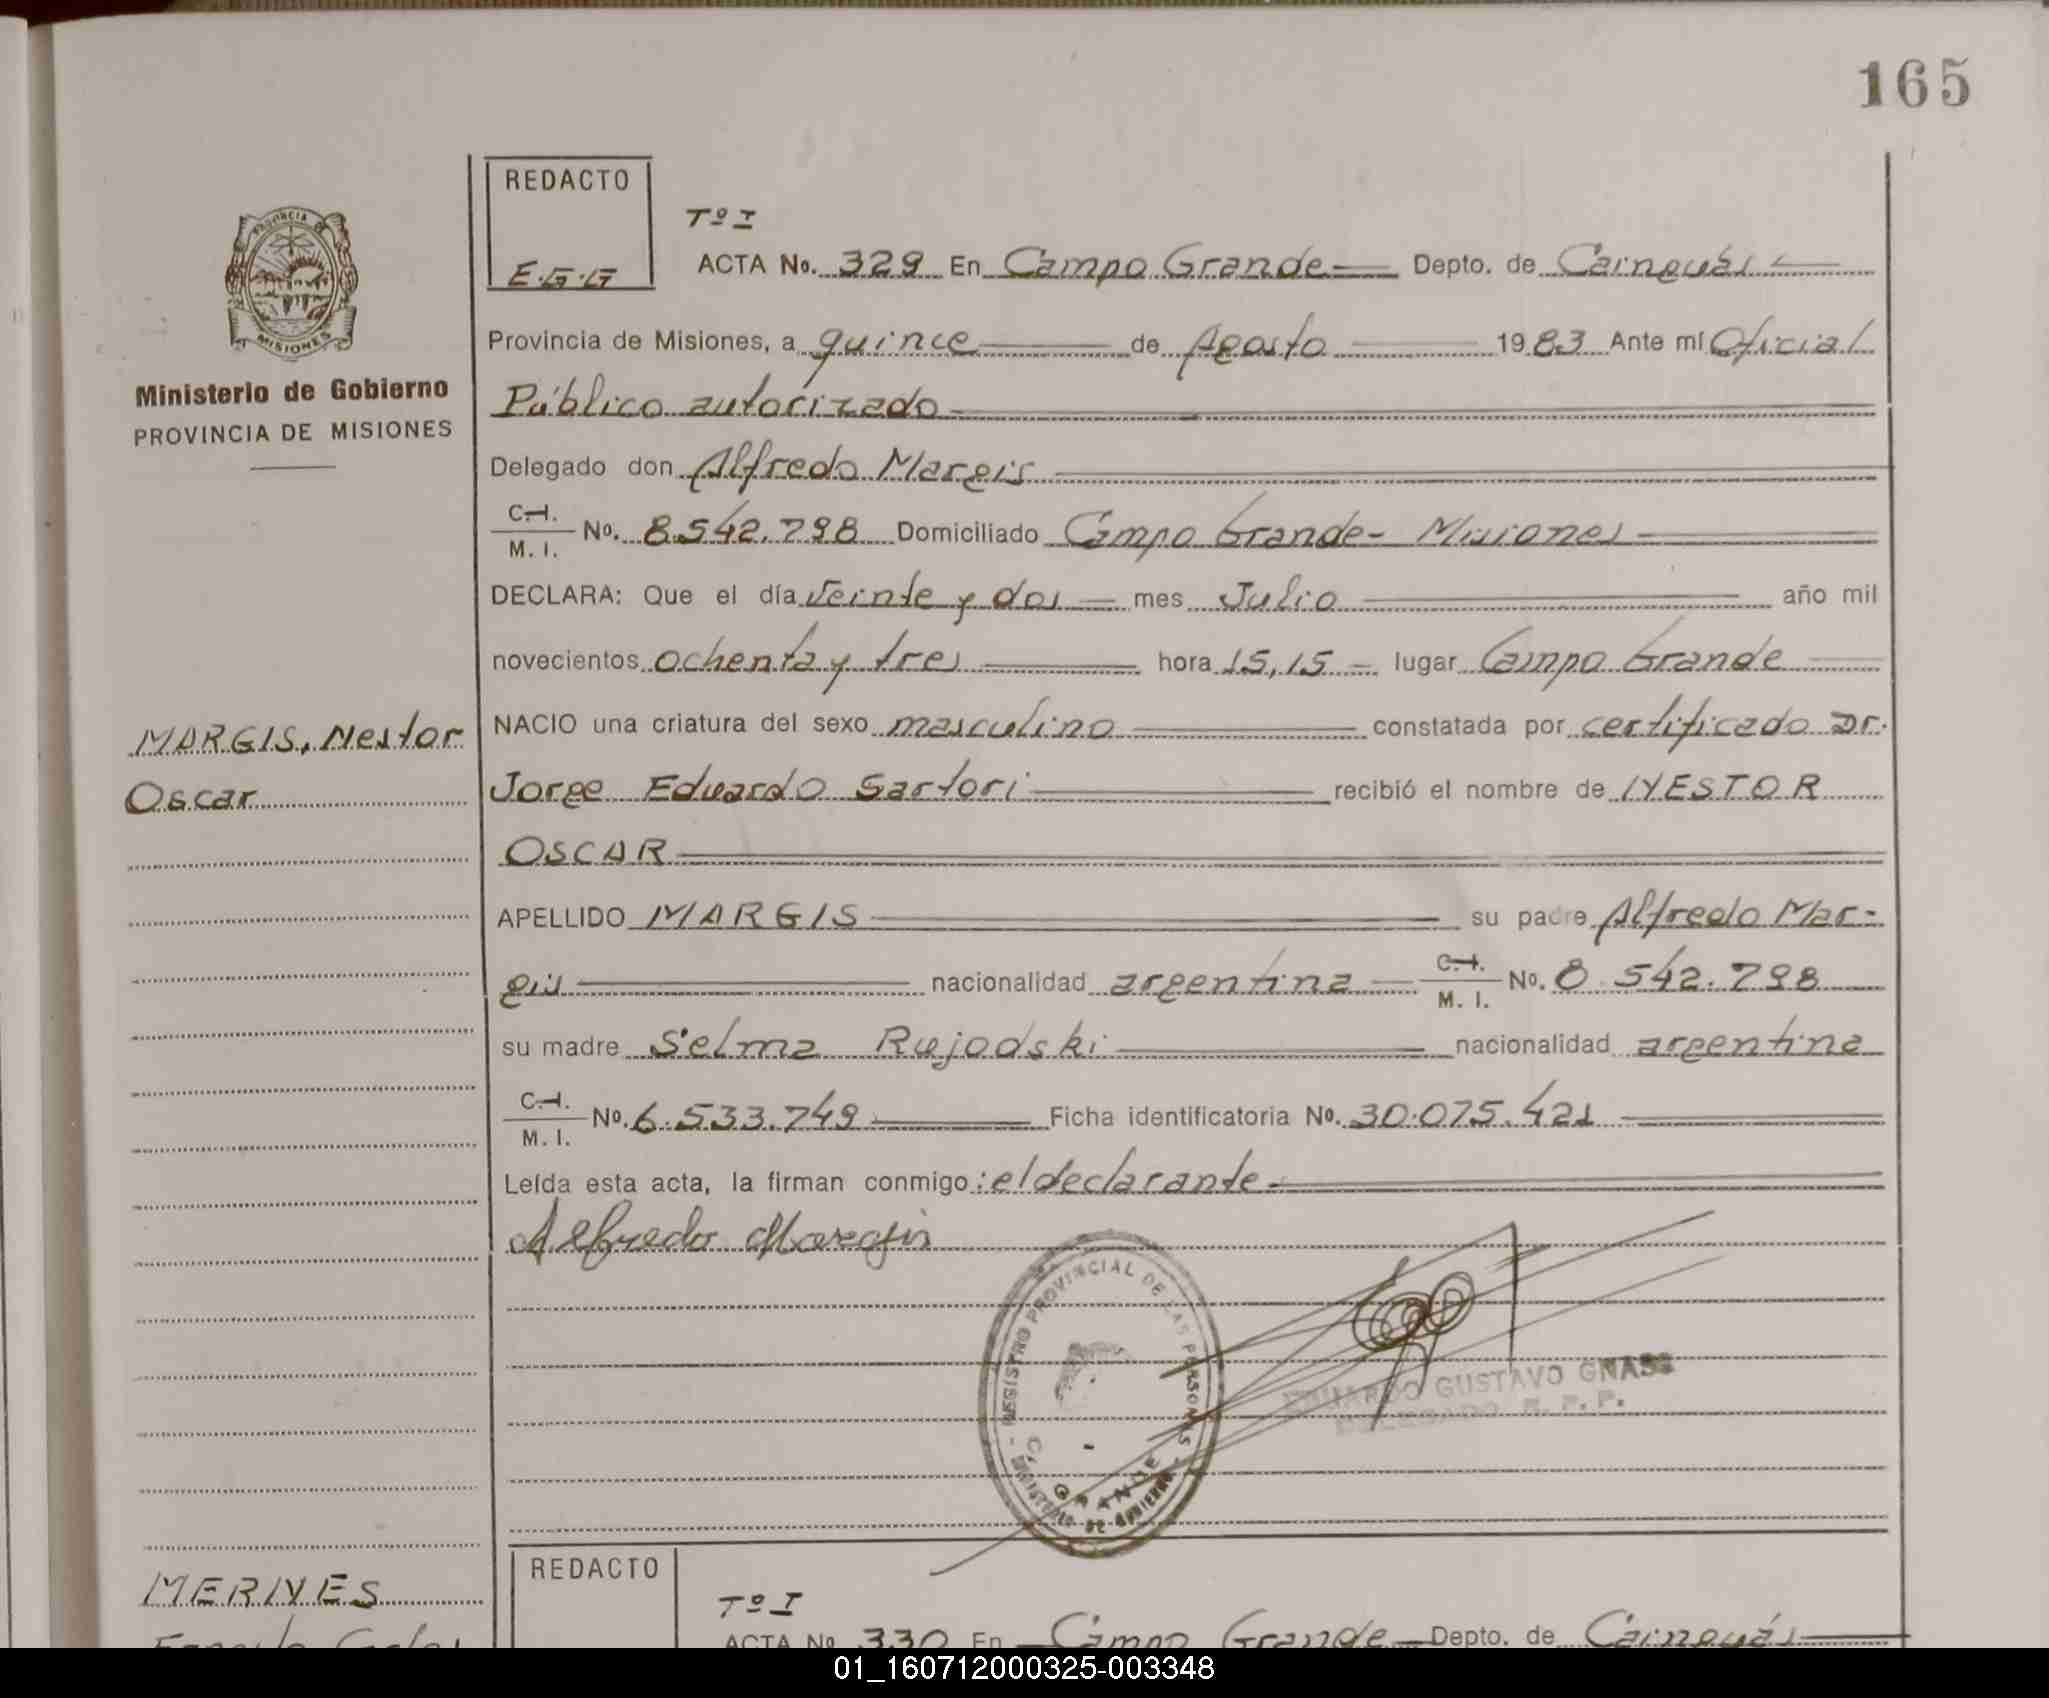 165
REDACTO
E.G.G
Tº I
ACTA No. 329 En Campo Grande Depto. de Cainguás
PROVINCIA DE
MISIONES
Ministerio de Gobierno
PROVINCIA DE MISIONES
Provincia de Misiones, a quince de Agosto 1983 Ante mí Oficial
Público autorizado
Delegado don Alfredo Margis
C.I. M. I. No. 8.542.798 Domiciliado Campo Grande- Misiones
DECLARA: Que el día Veinte y dos mes Julio año mil
novecientos ochenta y tres hora 15,15 lugar Campo Grande
MARGIS, Nestor
Oscar
NACIO una criatura del sexo masculino constatada por certificado Dr.
Jorge Eduardo Sartori recibió el nombre de NESTOR
OSCAR
APELLIDO MARGIS su padre Alfredo Mar-
gis nacionalidad argentina C.I. M. I. No. 8.542.798
su madre Selma Rujodski nacionalidad argentina
C.I. M. I. No. 6.533.749 Ficha identificatoria No. 30.075.421
Leída esta acta, la firman conmigo: el declarante
Alfredo Margis
REGISTRO PROVINCIAL DE LAS PERSONAS
C. GRANDE
MINISTERIO DE GOBIERNO
EDUARDO GUSTAVO GNASS
DELEGADO R. P. P.
MERNES
REDACTO
Tº I
ACTA No. 330 En Campo Grande Depto. de Cainguás
01_160712000325-003348